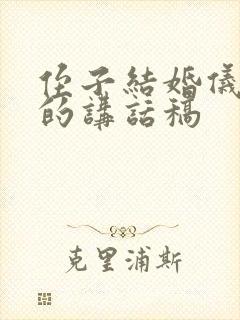 侄子結婚儀
的講話稿
克里浦斯